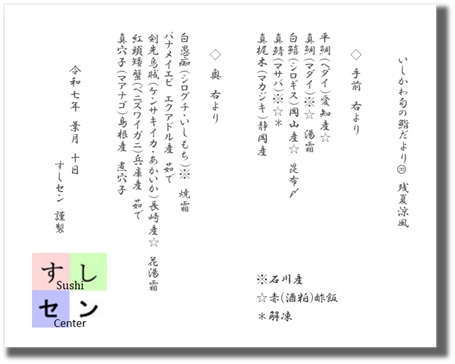 いしかわ旬の鮨だより㊴ 残夏涼風
◇ 手前 右より
平鯛(ヘダイ)愛知産☆
真鯛(マダイ)※☆ 湯霜
白鱚(シロギス)岡山産☆ 昆布〆
真鯖(マサバ)※☆＊
真梶木(マカジキ)静岡産
◇ 奥 右より
白愚痴(シログチ・いしもち)※ 焼霜
バナメイエビ エクアドル産 茹で
剣先烏賊(ケンサキイカ・あかいか)長崎産☆ 花湯霜
紅頭矮蟹(ベニズワイガニ)兵庫産 茹で
真穴子(マアナゴ)島根産 煮穴子
令和七年 葉月 十日
すしセン 謹製
※石川産
☆赤(酒粕)酢飯
＊解凍
すし
Sushi
セン
Center